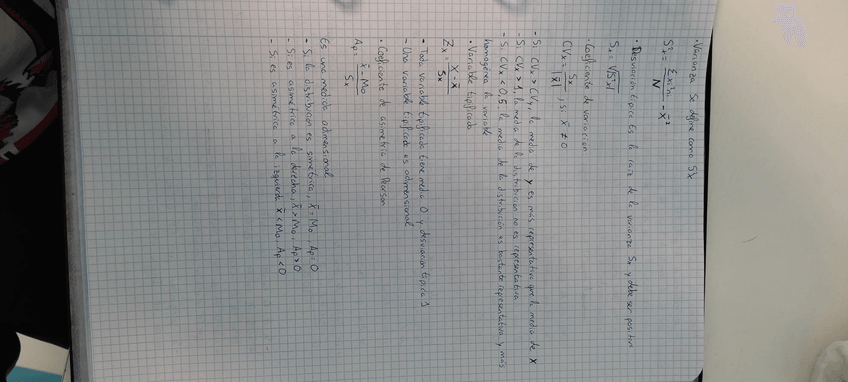 · Varianza Se define como S²x
S²x = Σxi²ni / N - x̄²
· Desviación típica Es la raiz de la varianza Sx y debe ser positiva
Sx = √|S²x|
· Coeficiente de variación
CVx = Sx / |x̄| , si x̄ ≠ 0
- Si CVx > CVy, la media de y es más representativa que la media de x
- Si CVx > 1, la media de la distribución no es representativa
- Si CVx < 0,5, la media de la distribución es bastante representativa y más
homogénea la variable
· Variable tipificada
Zx = X - x̄ / Sx
- Toda variable tipificada tiene media 0 y desviación típica 1
- Una variable tipificada es adimensional
· Coeficiente de asimetría de Pearson
Ap = x̄ - Mo / Sx
Es una medida adimensional
- Si la distribución es simétrica, x̄ = Mo, Ap = 0
- Si es asimétrica a la derecha, x̄ > Mo, Ap > 0
- Si es asimétrica a la izquierda x̄ < Mo, Ap < 0